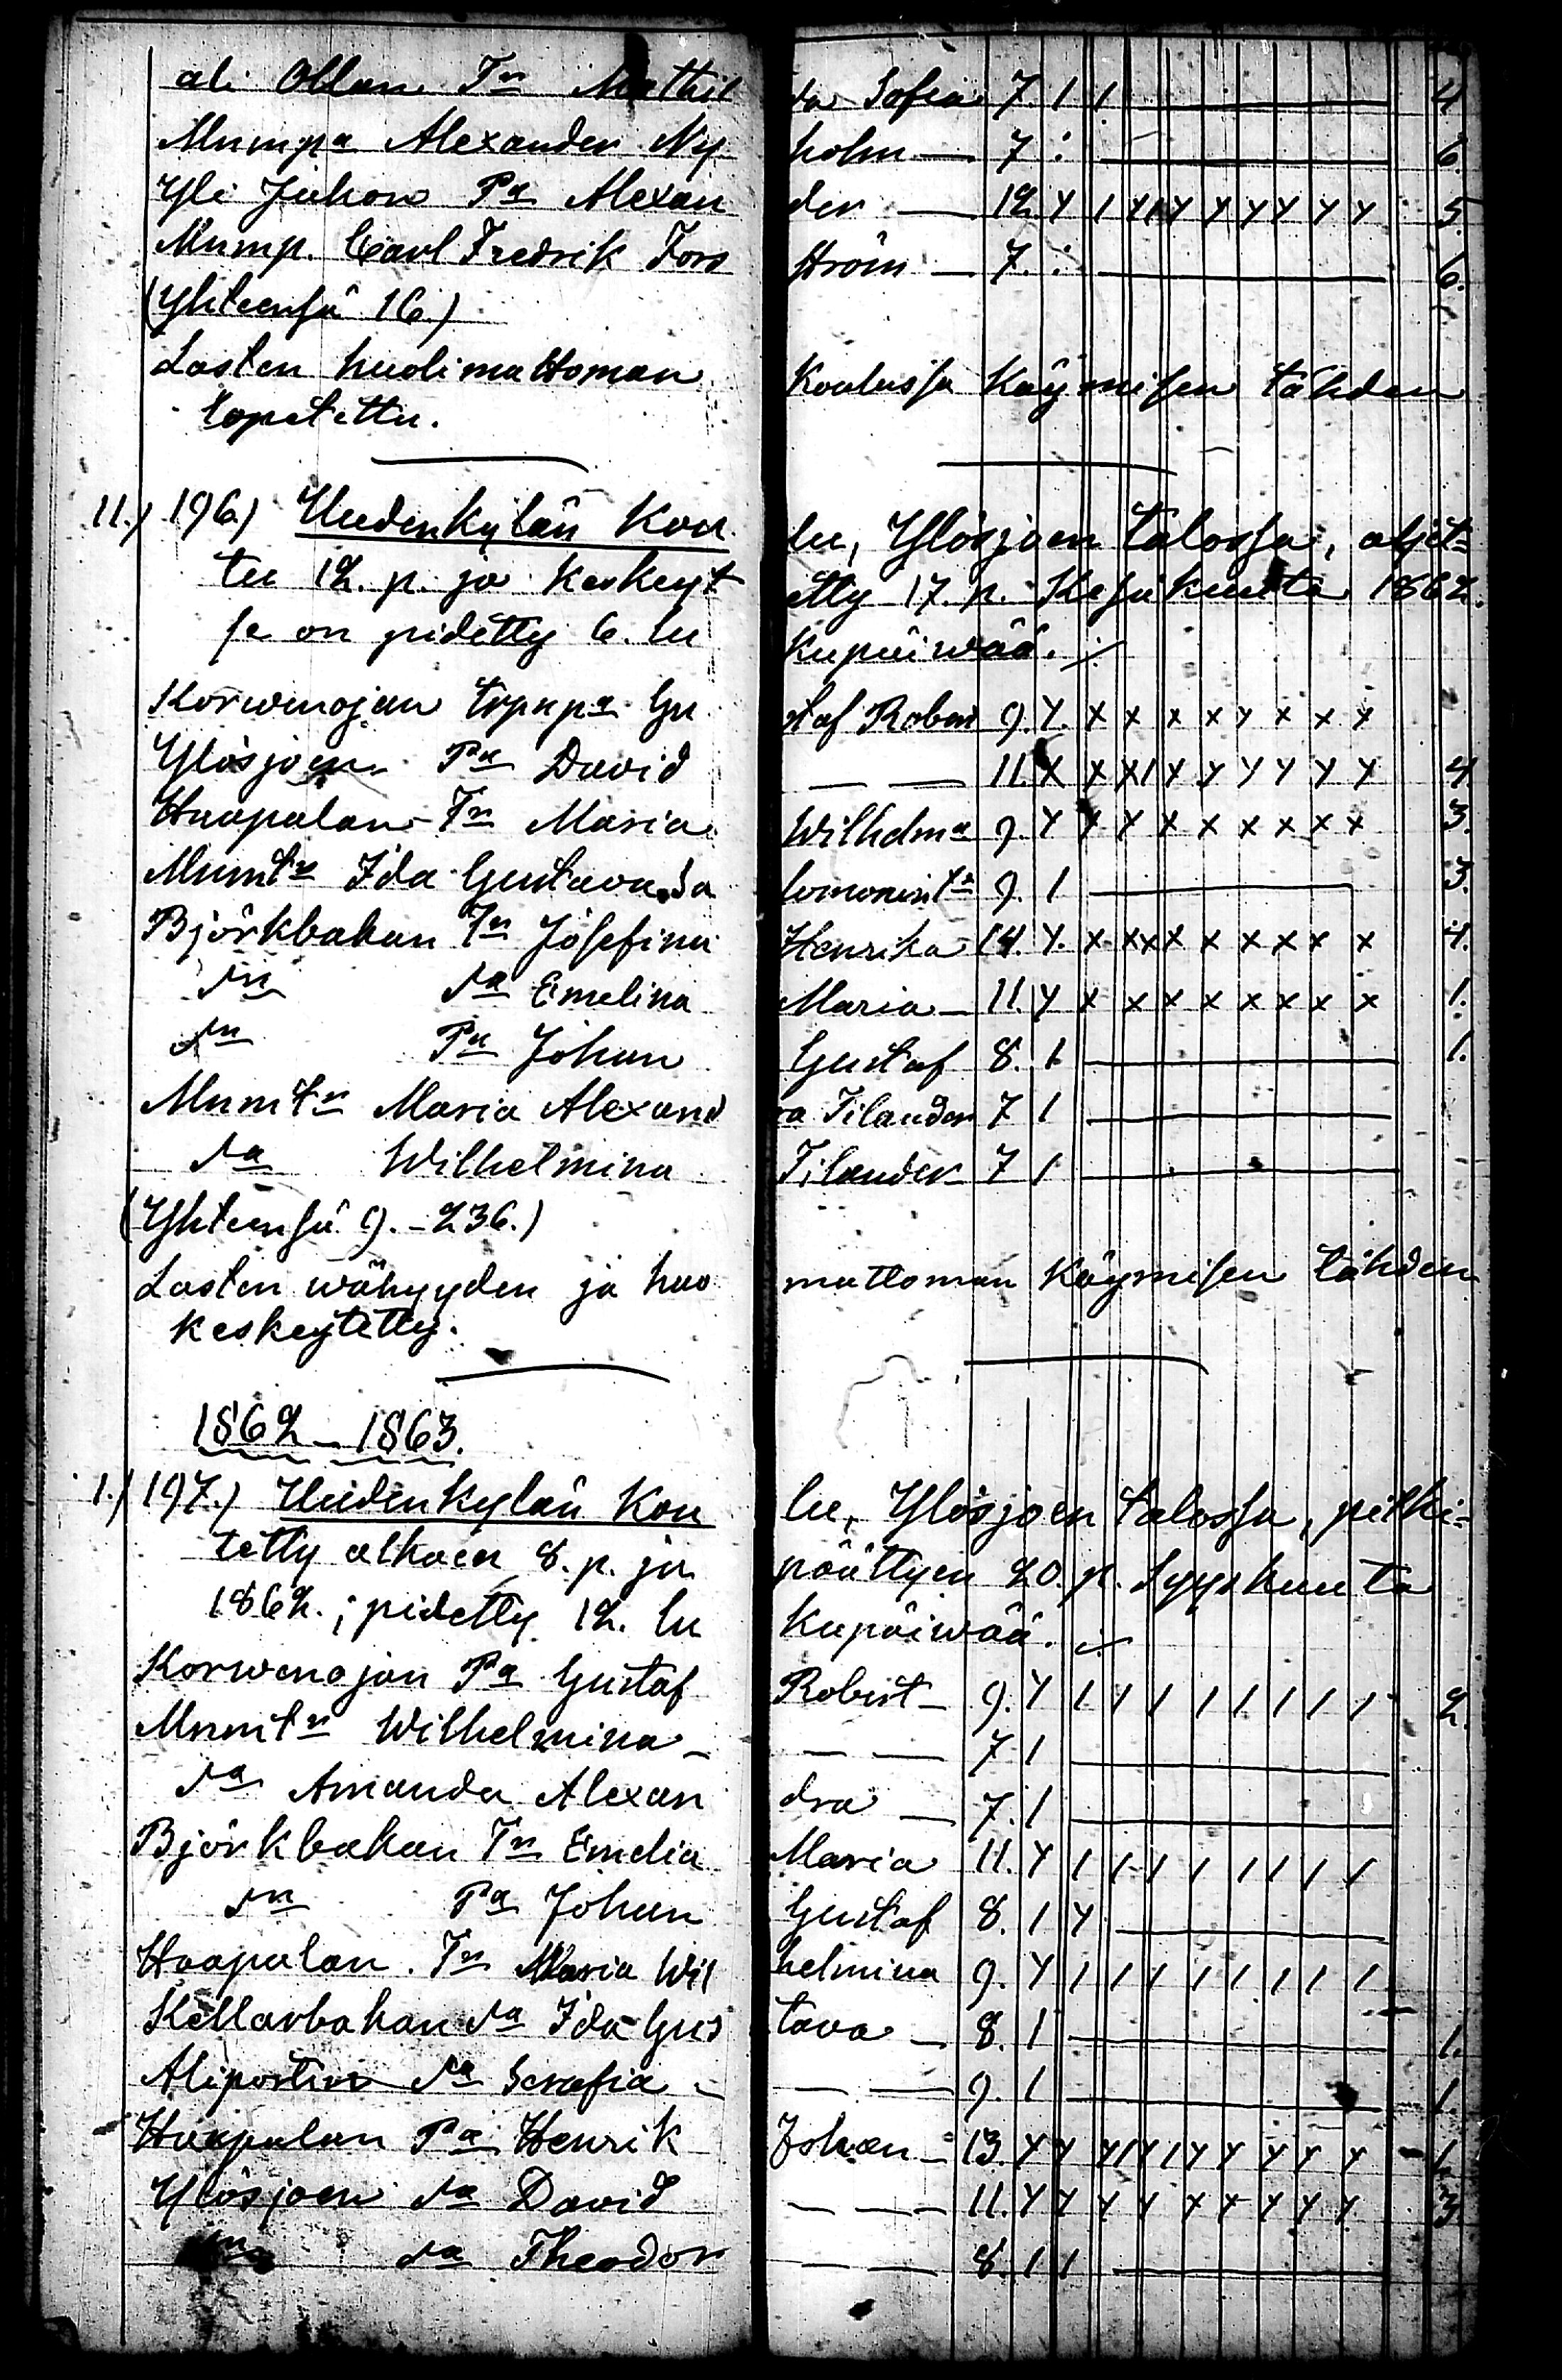 ali Ollan Tr Mathil da Sofia 7. 1 1 4
Mumpa Alexander Ny holm 7 : 6.
Yli Juhon Pa Alexan der 12. 5.
Mump. Carl Fredrik Fors ström 7. : 6.
(Yhteensä 16.)
Lasten huolimattoman Koulussa käymisen tähden
lopetettu.
11.) 196.) Uudenkylän Kou lu, Ylösjoen talossa, aljet=
tu 12. p. ja keskeyt etty 17. p. Kesäkuuta 1862.
se on pidetty 6. lu kupäiwää. ./.
Korwenojan trpupa Gu staf Robert 9. Y. x x x x y x x x
Ylösjoen Pa David — — 11. 4
Haapalan Tr Maria Wilhelma 9. Y Y Y x x x x x x 3.
Mumtr Ida Gustava Sa lomonintr 9. 1 3.
Björkbakan Tr Josefina Henrika 14. Y. x xxx x x x x x 4.
dn da Emelina Maria 11. Y x x x x x x x x 1.
dn Pa Johan Gustaf 8. 1 1.
Mumtr Maria Alexand ra Tilander 7 1
da Wilhelmina Tilander 7 1
(Yhteensä 9. - 236.)
Lasten wähyyden ja huo mattoman käymisen tähden
keskeytetty.
1862 - 1863.
1.) 197.) Uudenkylän Kou lu, Ylösjoen talossa, pitki=
tetty alkaen 8. p. ja päättyen 20. p. Syyskuuta
1862. ; pidetty 12. lu kupäiwää. ./.
Korwenojan Pa Gustaf Robert 9. Y 1 1 1 1 1 1 1 1 2.
Mumtr Wilhelmina — — 7 1
da Amanda Alexan dra 7. 1
Björkbakan Tr Emelia Maria 11. Y 1 1 1 1 1 1 1 1
dn Pa Johan Gustaf 8. 1 Y
Haapalan Tr Maria Wil helmina 9. Y 1 1 1 1 1 1 1 1
Kellarbakan da Ida Gus tava 8. 1 1.
Aliportin da Serafia — — 9. 1 1.
Haapalan Pa Henrik Johan 13. 1.
Ylösjoen da David — — 11. Y Y Y Y Y Y Y Y Y 3.
dn da Theodor — — 8. 1 1